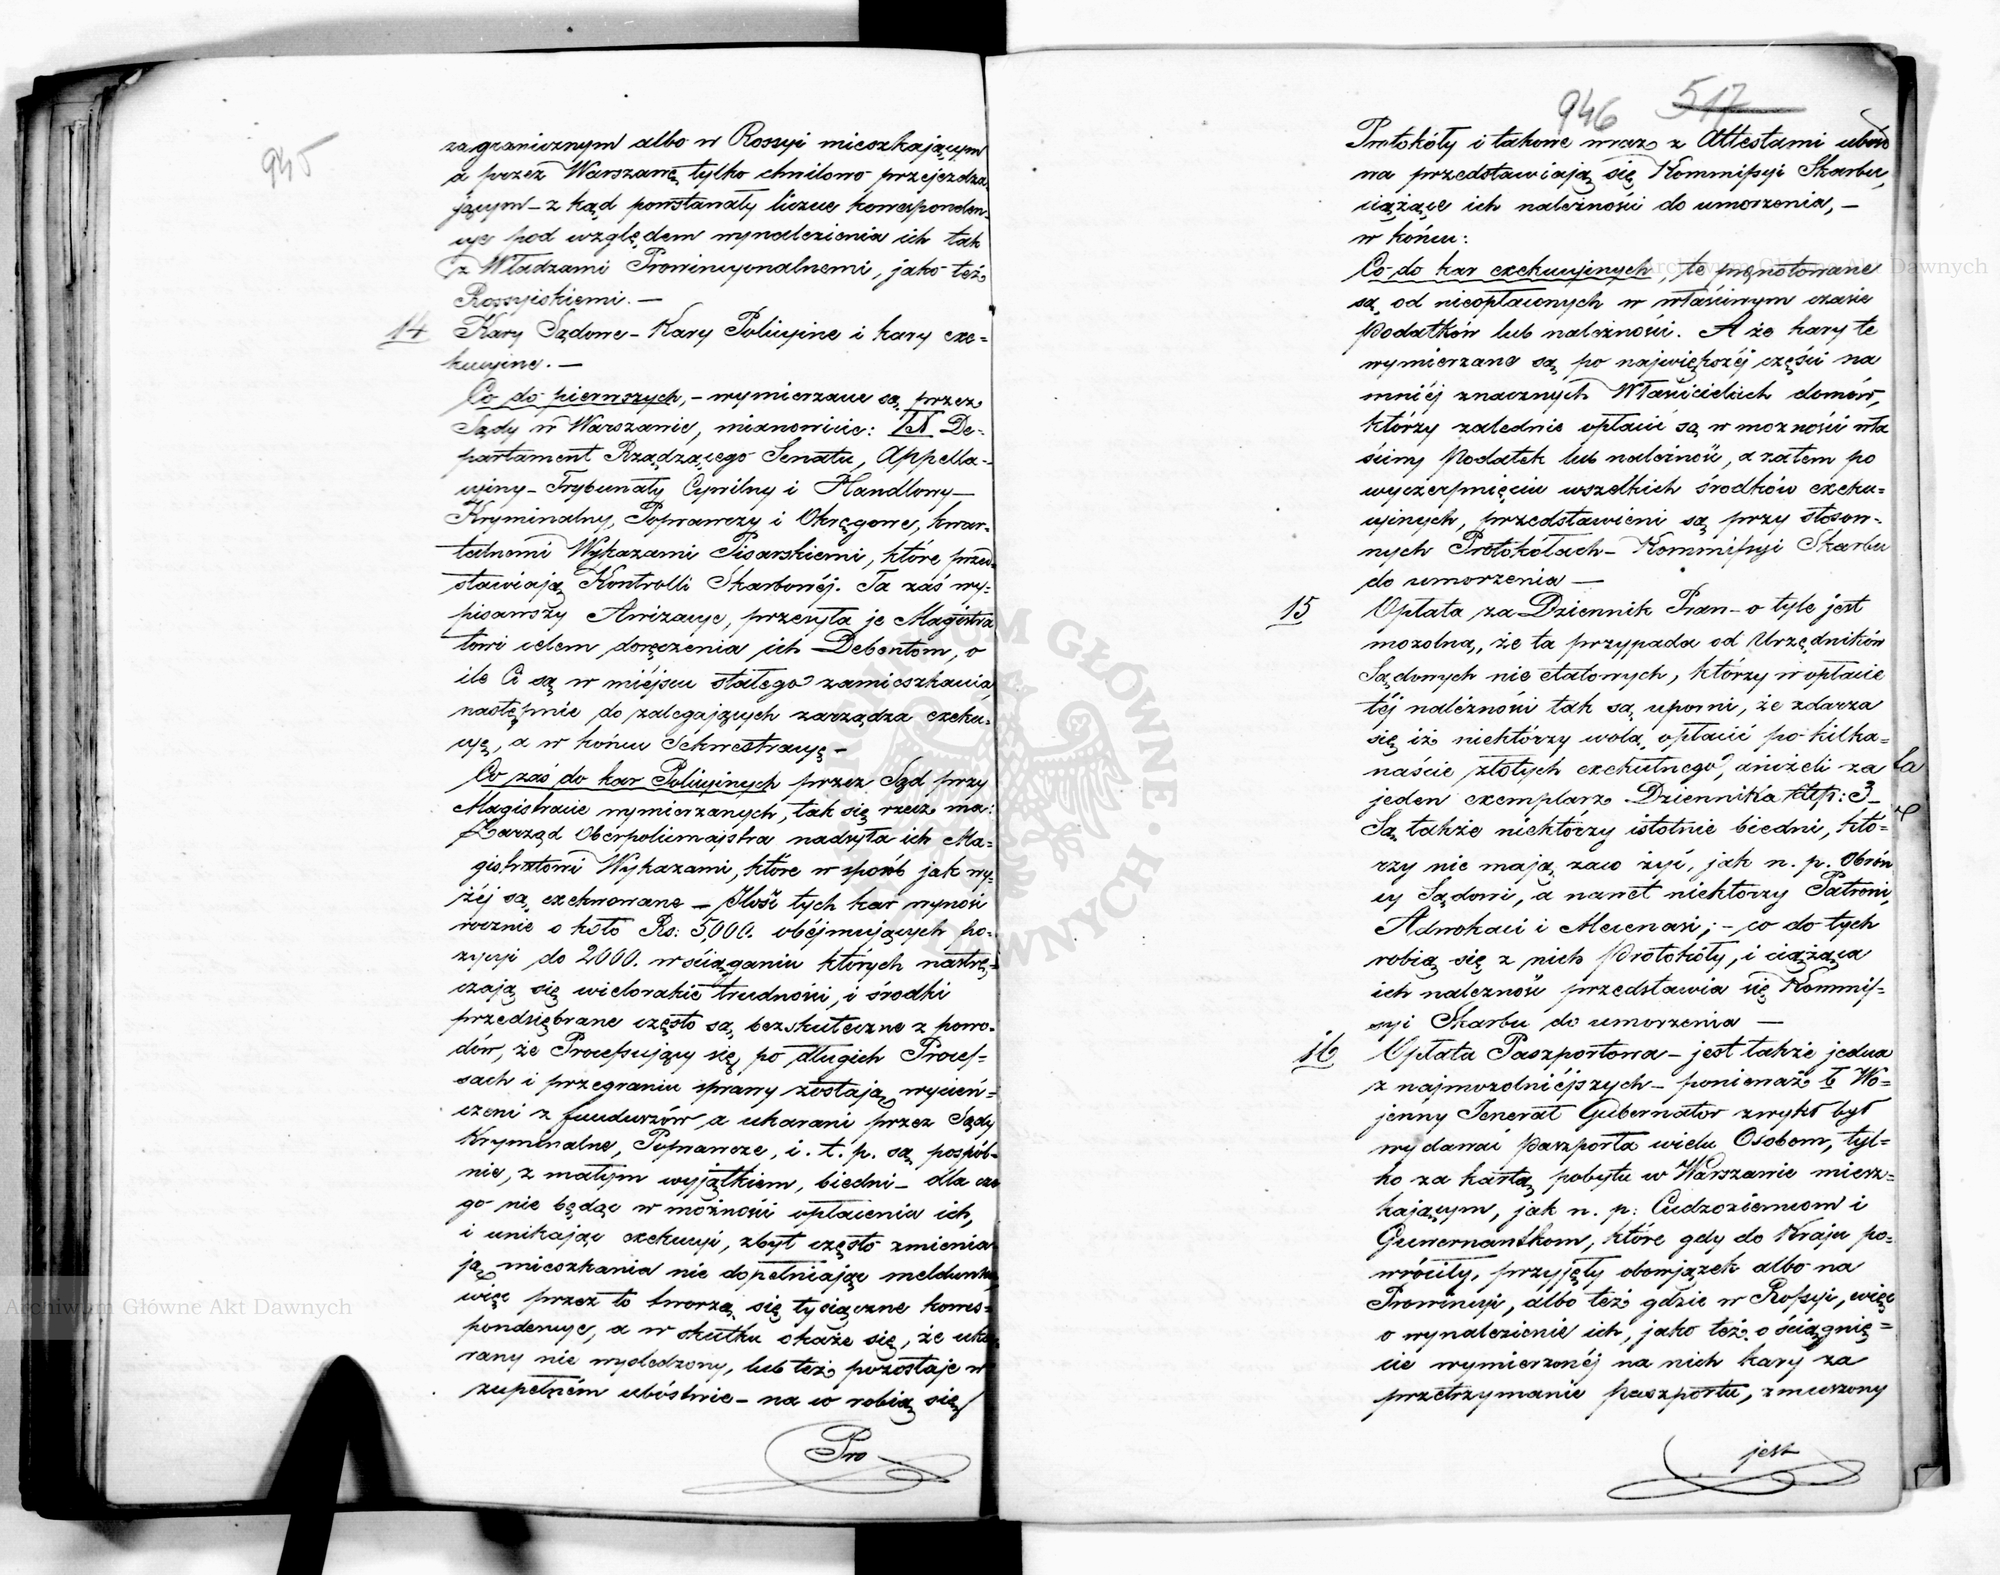 945
zagranicznym albo w Rossyi mieszkającym
a przez Warszawę tylko chwilowo przejeżdża
jącym – z kąd powstawały liczne korresponden-
cye pod względem wynalezienia ich tak
z Władzami Prowincyonalnemi, jako też
Rossyjskiemi. —
14 Kary Sądowe – Kary Policyjne i kary exe=
kucyjne. —
Co do pierwszych, – wymierzane są przez
Sądy w Warszawie, mianowicie: IX De-
partament Rządzącego Senatu, Appella-
cyiny – Trybunały Cywilny i Handlowy –
Kryminalny, Poprawczy i Okręgowe, kwar-
talnemi Wykazami Pisarskiemi, które przed-
stawiają Kontrolli Skarbowéj. Ta zaś wy-
pisawszy Awizacye, przesyła je Magistra
towi celem doręczenia ich Debentom, o
ile Ci są w miéjscu stałego zamieszkania
następnie do zalegających zarządza exeku-
cyę, a w końcu Sekwestracyę –
Co zaś do kar Policyinych przez Sąd przy
Magistracie wymierzanych, tak się rzecz ma:
Zarząd Oberpolicmajstra nadsyła ich Ma-
gistratowi Wykazami, które w sposób jak wy-
żéj są exekwowane – Ilość tych kar wynosi
rocznie o koło Rs: 5,000. obéjmujących po-
zycyi do 2000. w ściąganiu których nastrę-
czają się wielorakie trudności, i środki
przedsiębrane często są bezskuteczne z powo-
dów, że Processujący się, po długich Proces-
sach i przegraniu sprawy zostają wycień-
czeni z funduszów, a ukarani przez Sądy
Kryminalne, Poprawcze, i. t. p. są pospól-
nie, z małym wyjątkiem, biedni – dla cze
go nie będąc w możności opłacenia ich,
i unikając exekucyi, zbyt często zmienia
ją mieszkania nie dopełniając meldunku,
więc przez to tworzą się tysiączne korres-
pondencye, a w skutku okaże się, że uka-
rany nie wyśledzony, lub też pozostaje w
zupełném ubóstwie – na co robią się
Pro
946 517
Protokóły i takowe wraz z Attestami ubós
na przedstawiają się Kommissyi Skarbu,
ciążące ich należności do umorzenia, –
w końcu:
Co do kar exekucyinych, te prenotowane
są od nieopłaconych w właściwym czasie
Podatków lub należności. A że kary te
wymierzane są po największéj części na
mniéj znacznych Właścicielach domów,
którzy zaledwie opłacić są w możności wła
ściwy Podatek lub należność, a zatem po
wyczerpnięciu wszelkich środków exeku-
cyinych, przedstawieni są przy stosow-
nych Protokółach – Kommissyi Skarbu
do umorzenia —
15 Opłata za Dziennik Praw – o tyle jest
mozolną, że ta przypada od Urzędników
Sądowych nie etatowych, którzy w opłacie
téj należności tak są uporni, że zdarza
się iż niektórzy wolą opłacić po kilka-
naście złotych exekutnego, aniżeli za
jeden exemplarz Dziennika 3 –
Są także niektórzy istotnie biedni, któ-
rzy nie mają zaco żyć, jak n. p. Obroń
cy Sądowi, a nawet niektorzy Patroni,
Adwokaci i Mecenasi; – co do tych
robią się z nich Protokóły, i ciążąca
ich należność przedstawia się Kommis-
syi Skarbu do umorzenia —
16 Opłata Paszportowa – jest także jedna
z najmozolniéjszych – ponieważ b Wo-
jenny Jenerał Gubernator zwykł był
wydawać paszporta wielu Osobom, tyl-
ko za kartą pobytu w Warszawie miesz-
kającym, jak n. p: Cudzoziemcom i
Guwernantkom, które gdy do Kraju po-
wróciły, przyjęły obowjązek albo na
Prowincyi, albo też gdzie w Rossyi, więc
o wynalezienie ich, jako też o ściągnię-
cie wymierzonéj na nich kary za
przetrzymanie paszportu, zmuszony
jest
Archiwum Główne Akt Dawnych
Archiwum Główne Akt Dawnych
ARCHIWUM GŁÓWNE AKT DAWNYCH